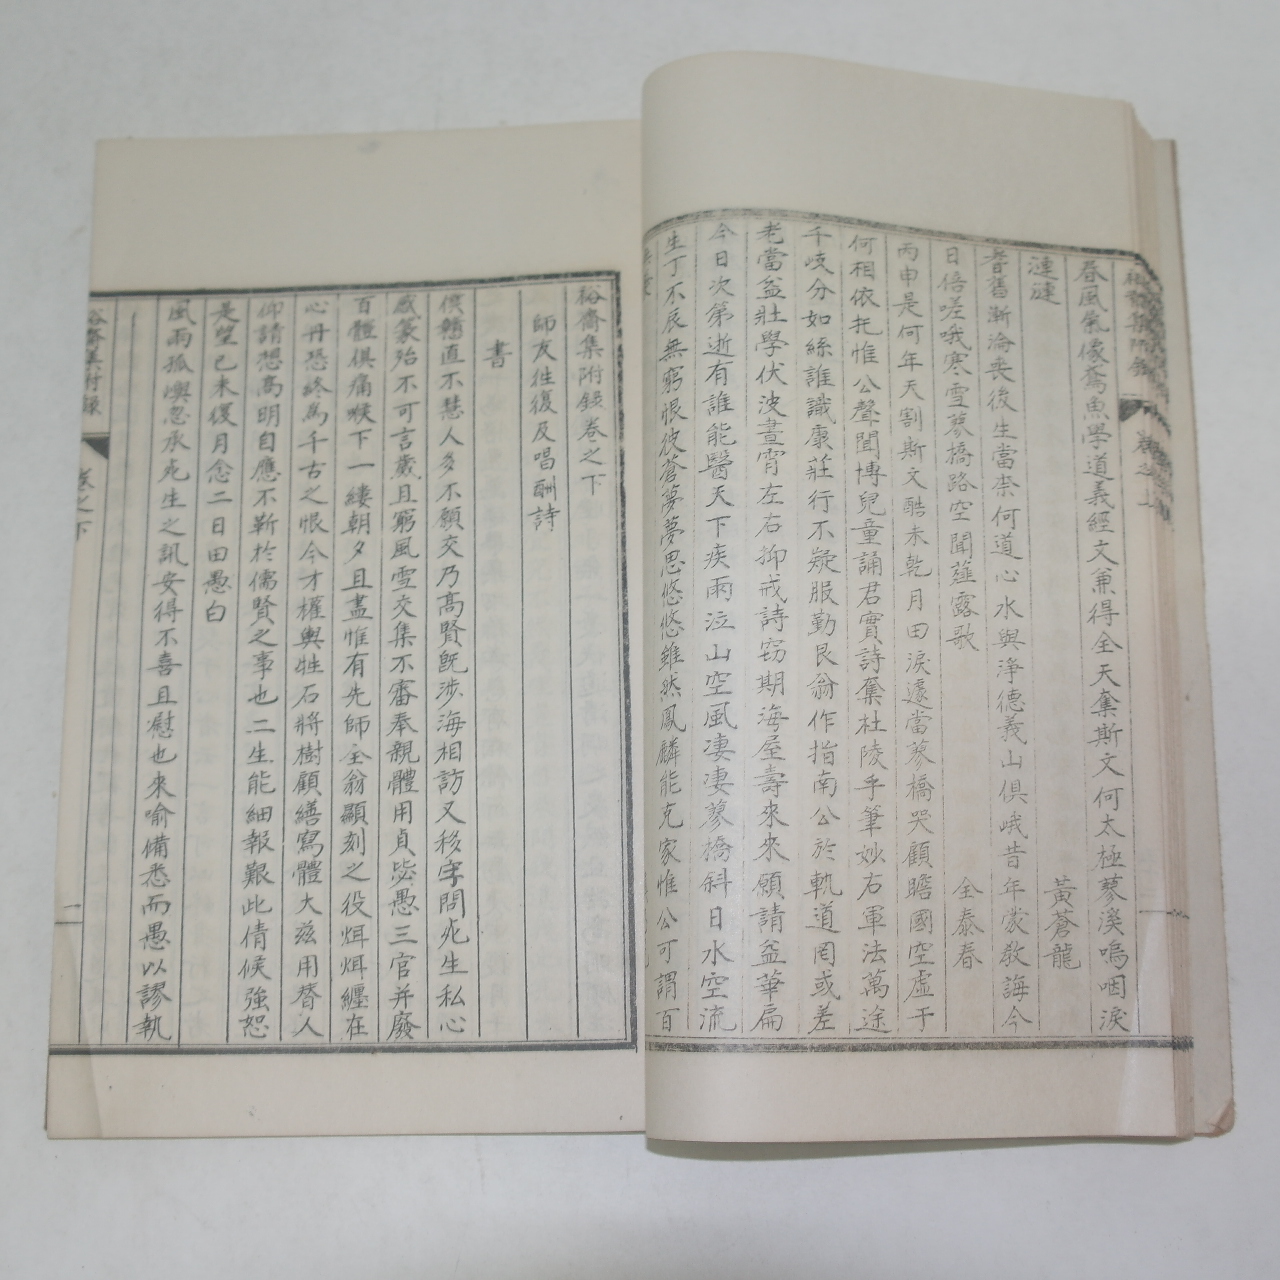 春風氣像鳶魚學道義經文兼得全天奪斯文何太極蓼溪嗚咽淚
漣漣
黃蒼龍
耆舊漸淪喪後生當柰何道心水與淨德義山俱峨昔年蒙敎誨今
日倍嗟哦寒雪蓼橋路空聞薤露歌
全泰春
丙申是何年天割斯文酷未乾月田淚遽當蓼橋哭顧瞻國空虛于
何相依托惟公聲聞博兒童誦君實詩奪杜陵手筆妙右軍法萬途
千岐分如絲誰識康莊行不疑服勤艮翁作指南公於軌道罔或差
老當益壯學伏波晝宵左右抑戒詩窃期海屋壽來來願請益華扁
今日次第逝有誰能醫天下疾雨泣山空風凄凄蓼橋斜日水空流
生丁不辰無窮恨彼蒼夢夢思悠悠雖然鳳麟能克家惟公可謂百
裕齋集附錄卷之下
師友往復及唱酬詩
書
僕戇直不慧人多不願交乃高賢旣涉海相訪又移字問死生私心
感篆殆不可言歲且窮風雪交集不審奉親體用貞毖愚三官并廢
百體俱痛喉下一縷朝夕且盡惟有先師全翁顯刻之役炟炟纏在
心丹恐終爲千古之恨今才權輿牲石將樹顧繕寫體大玆用替人
仰請想高明自應不靳於儒賢之事也二生能細報艱此倩候強恕
是望己未復月念二日田愚白
風雨孤燠忽承死生之訊安得不喜且慰也來喻備悉而愚以謬執
卷之下
一